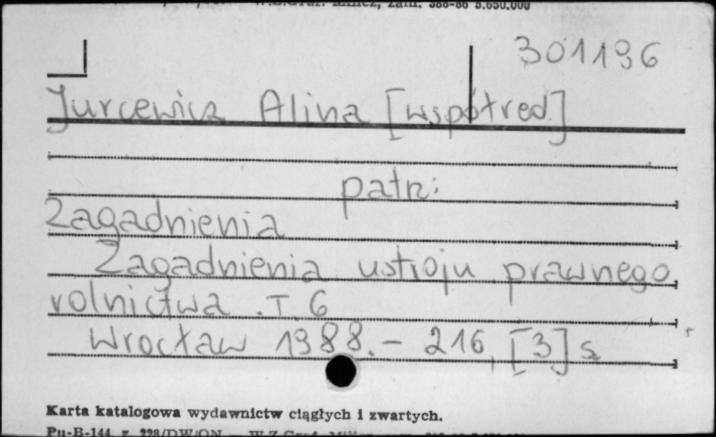 Zam. 388-86 5.650.000
301196
Jurcewicz Alina [współred.]
patrz:
Zagadnienia
Zagadnienia ustroju prawnego
rolnictwa. T. 6
Wrocław 1988. - 216, [3] s
Karta katalogowa wydawnictw ciągłych i zwartych.
Pu-B-144